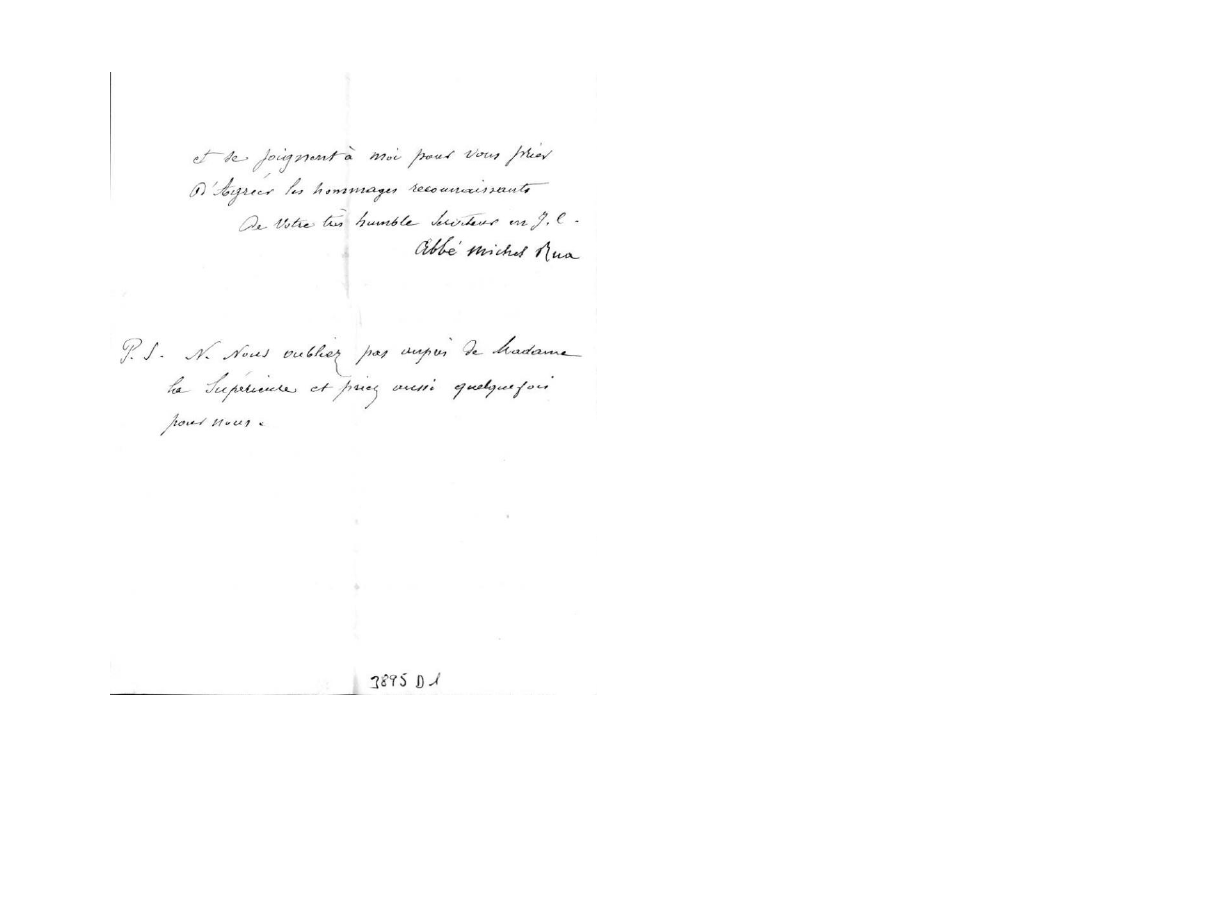 et se joignent à moi pour vous prier
D'Agréer les hommages reconnaissants
De Votre très humble Serviteur en J. C.
Abbé Michel Rua
P. S. N. Nous oubliez pas aupès de Madame
La Supérieure et priez aussi quelquefois
pour nous.
3895 D 1